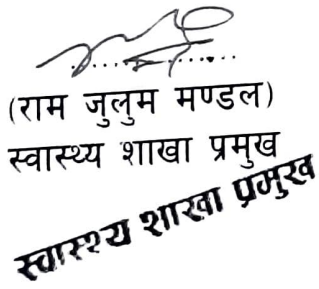 (राम जुलुम मण्डल)
स्वास्थ्य शाखा प्रमुख
स्वास्थ्य शाखा प्रमुख